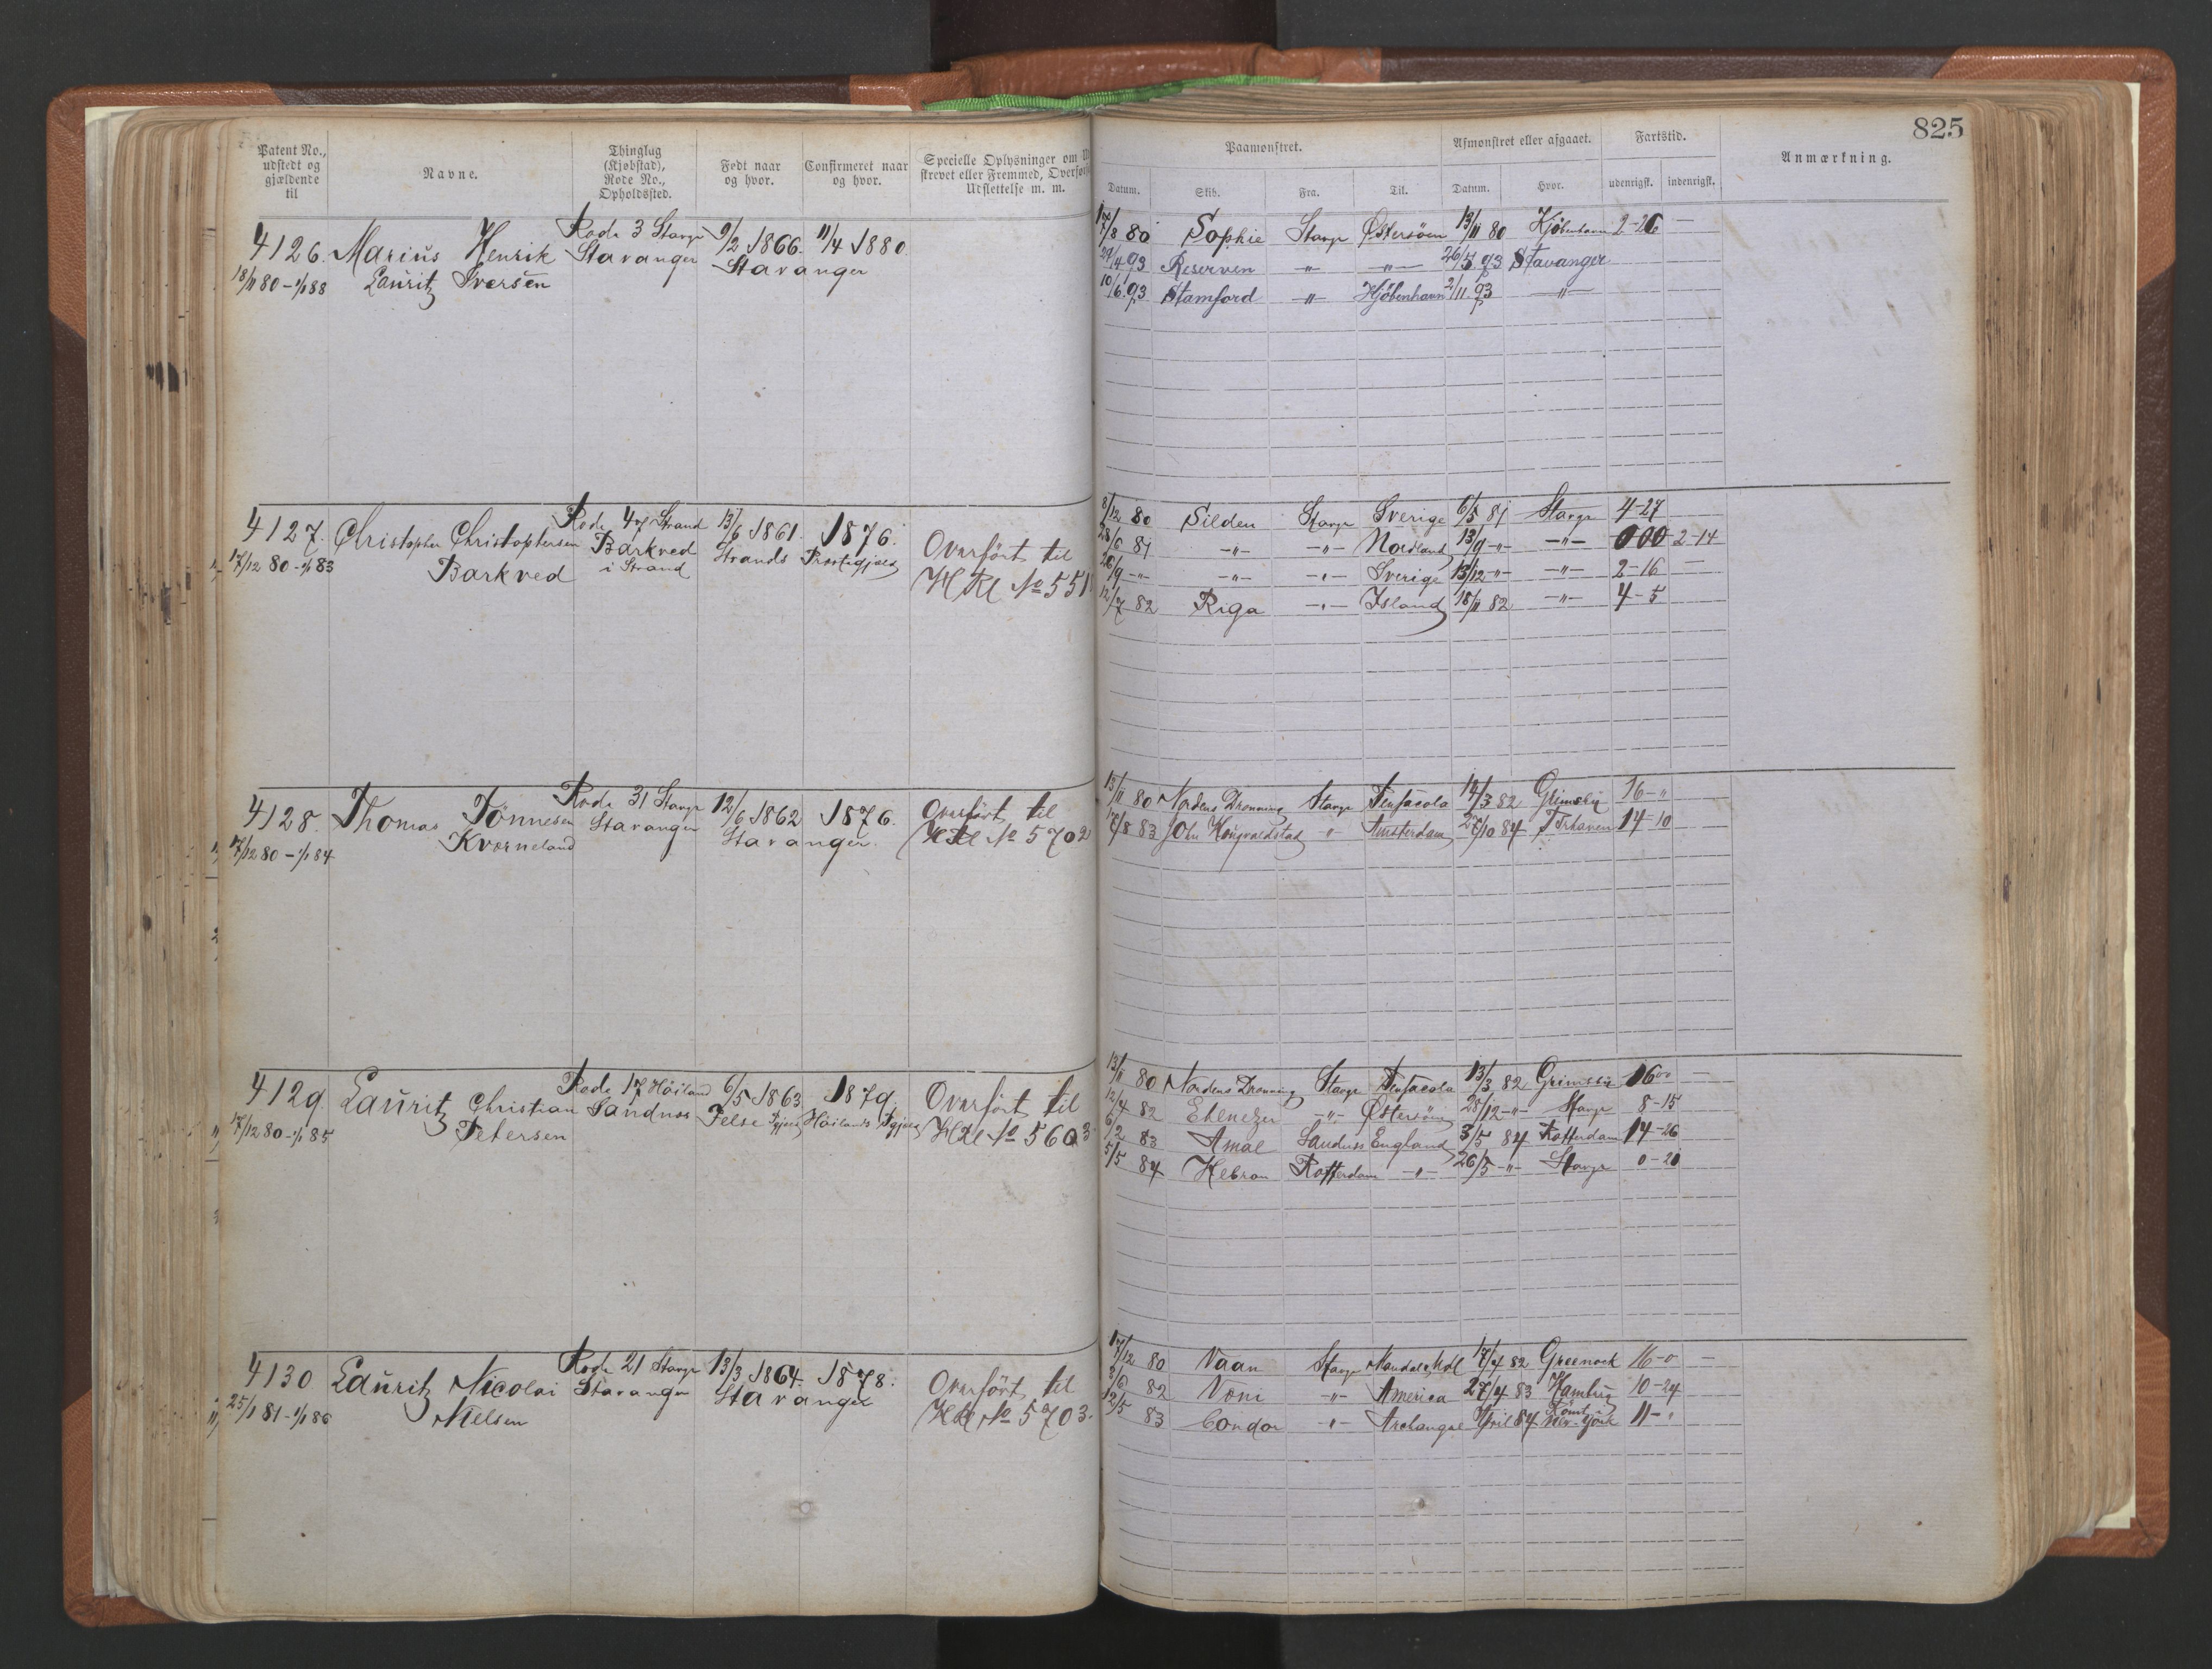 825
Patent No., udstedt og gjældende til
Navne.
Thinglag (Kjøbstad), Rode No., Opholdssted.
Født naar og hvor.
Confirmeret naar og hvor.
Specielle Oplysninger om
skrevet eller Fremmed, Overført
Udslettelse m. m.
Paamønstret.
Afmønstret eller afgaaet.
Fartstid.
Anmærkning.
Datum. Skib. Fra. Til. Datum. Hvor. udenrigsk. indenrigsk.
4126. Marius Henrik Rode 3 Stavgr 9/2 1866. 11/4 1880
18/11 80 - 1/1 88 Lauritz Iversen Stavanger Stavanger
17/8 80 Sophie Stavgr Østersøen 13/11 80 Kjøbenhavn 2-26 —
24/4 93 Reserven —"— —"— 26/5 93 Stavanger
10/6 93 Stamford —"— Kjöbenhavn 2/11 93 —"—
4127. Christopher Christophersen Rode 47 Strand 13/6 1861. 1876.
17/12 80 - 1/1 83 Barkved Barkved i Strand Strands Præstegjeld
Overført til
HRl No 551
8/12 80 Silden Stavgr Sverige 6/5 81 Stavgr 4-27
28/6 81 —"— —"— Nordland 13/9 -"- —"— 000 2-14
20/9 -"- —"— —"— Sverige 13/12 -"- —"— 2-16 —
12/7 82 Riga —"— Island 18/11 82 —"— 4-5
4128. Thomas Tönnesen Rode 31 Stavgr 12/6 1862 1876.
17/12 80 - 1/1 84 Kvorneland Stavanger Stavanger.
Overført til
HRl No 5702
13/11 80 Nordens Dronning Stavgr Pensacola 14/3 82 Grimsby 16-"
17/8 83 John Kongvaldstad " Amsterdam 27/10 84 14-10
4129. Lauritz Christian Rode 17 Höiland 6/5 1863 1879.
17/12 80 - 1/1 85 Petersen Sandnes Pgjeld Höilands Pgjeld
Overført til
HRl No 5603
13/11 80 Nordens Dronning Stavgr Pensacola 13/3 82 Grimsby 16-00 —
12/4 82 Ebenezer -"- Østersöen 28/12 -"- Stavgr 8-15
6/2 83 Amal Sandnes England 3/5 84 Rotterdam 14-26
5/5 84 Hebron Rotterdam -"- 26/5 -"- Stavgr 0-21
4130 Lauritz Nicolai Rode 21 Stavgr 13/3 1864. 1878.
25/1 81 - 1/1 86 Nielsen Stavanger Stavanger
Overført til
HRl No 5703.
17/12 80 Vaan Stavgr Mandal 17/4 82 Greenock 16-0 —
3/6 82 Voni -"- America 27/4 83 Hamburg 10-24
12/5 83 Condor -"- Archangel April 84 Rømt New-York 11-"